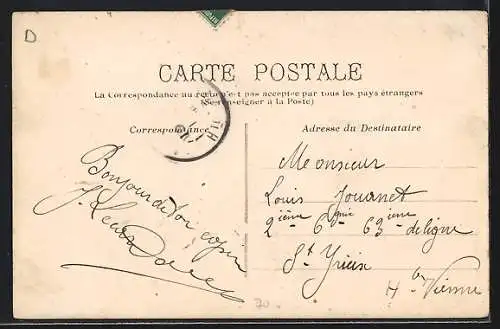 D
CARTE POSTALE
La Correspondance au recto n'est pas acceptée par tous les pays étrangers
(Se renseigner à la Poste)
Correspondance
Adresse du Destinataire
Bonjour de ton copin
Monsieur
Louis Jouanet
2ième 6 Cgnie 63ième de ligne
St Yrieix
Hte Vienne
70